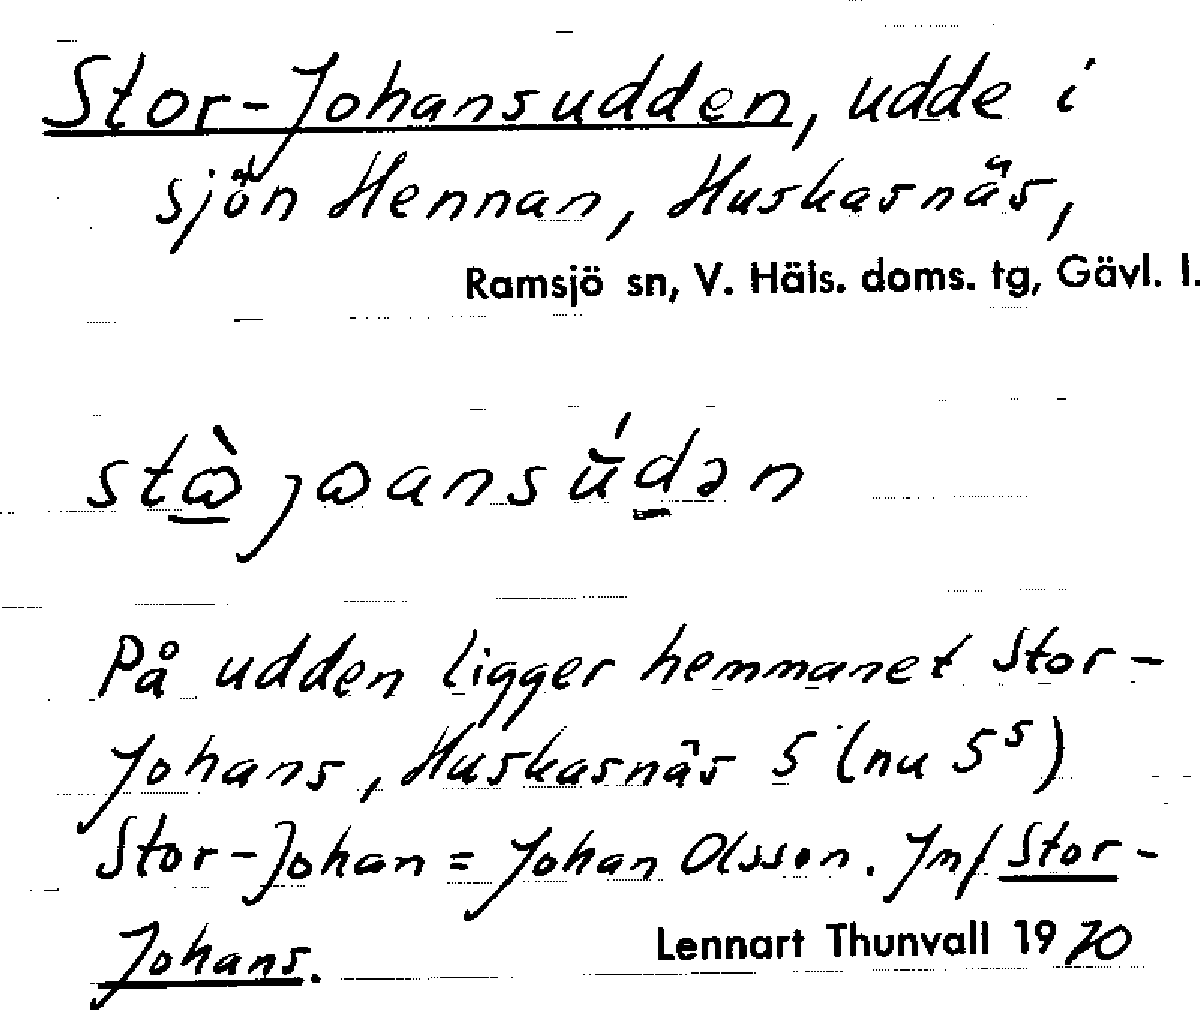 Stor-Johansudden, udde i
sjön Hennan, Huskasnäs,
Ramsjö sn, V. Häls. doms. tg, Gävl. l.
På udden ligger hemmanet Stor-
Johans, Huskasnäs 5 (nu 5⁵)
Stor-Johan = Johan Olsson. Jmf Stor-
Johans.
Lennart Thunvall 1970